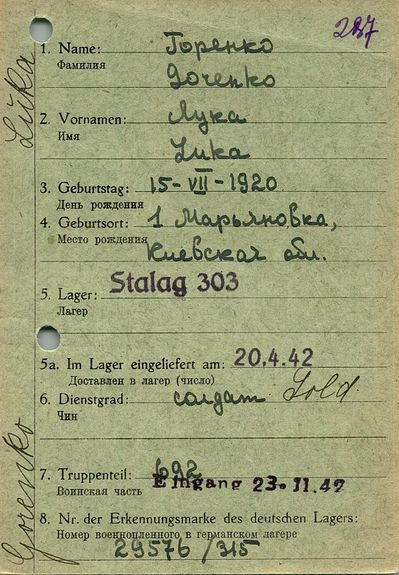 287
1. Name: Горенко
Фамилия
Gorenko
2. Vornamen: Лука
Имя
Luka
3. Geburtstag: 15-VII-1920
День рождения
4. Geburtsort: 1 Марьяновка,
Место рождения
Киевская обл.
5. Lager: Stalag 303
Лагерь
5a. Im Lager eingeliefert am: 20.4.42
Доставлен в лагер (число)
6. Dienstgrad: солдат Sold.
Чин
7. Truppenteil: 692
Воинская часть Eingang 23.11.42
8. Nr. der Erkennungsmarke des deutschen Lagers:
Номер военнопленного в германском лагере
29576 /315
Luka
Gorenko